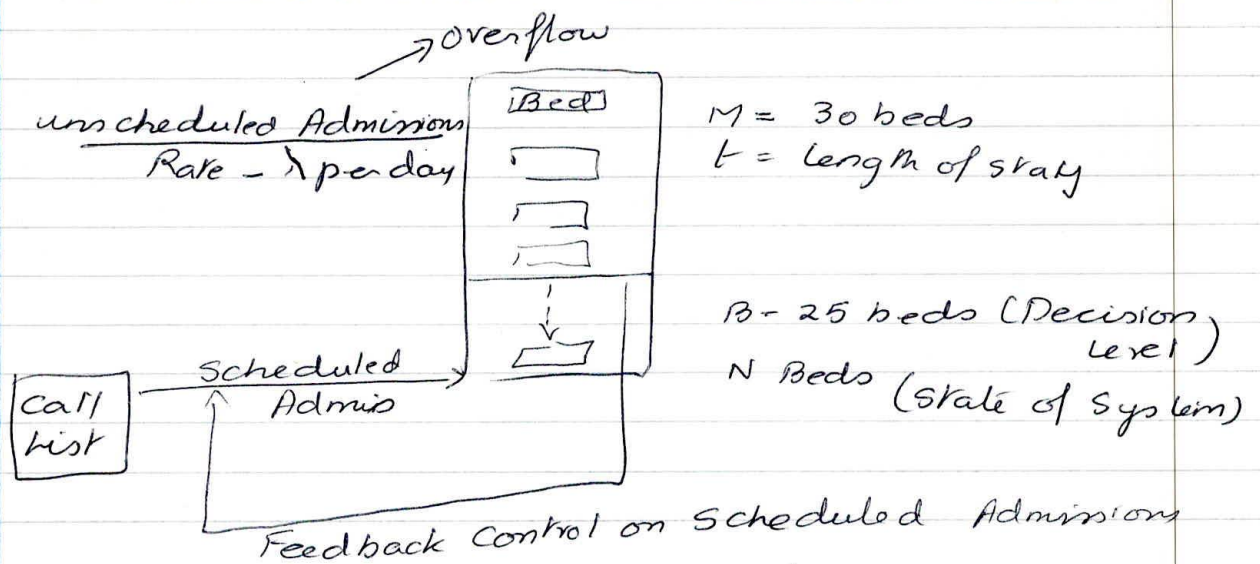 overflow
Bed
unscheduled Admissions
Rate - λ per day
M = 30 beds
t = Length of stay
B - 25 beds (Decision Level)
N Beds (State of System)
Scheduled
Admis
Call
List
Feedback Control on Scheduled Admissions